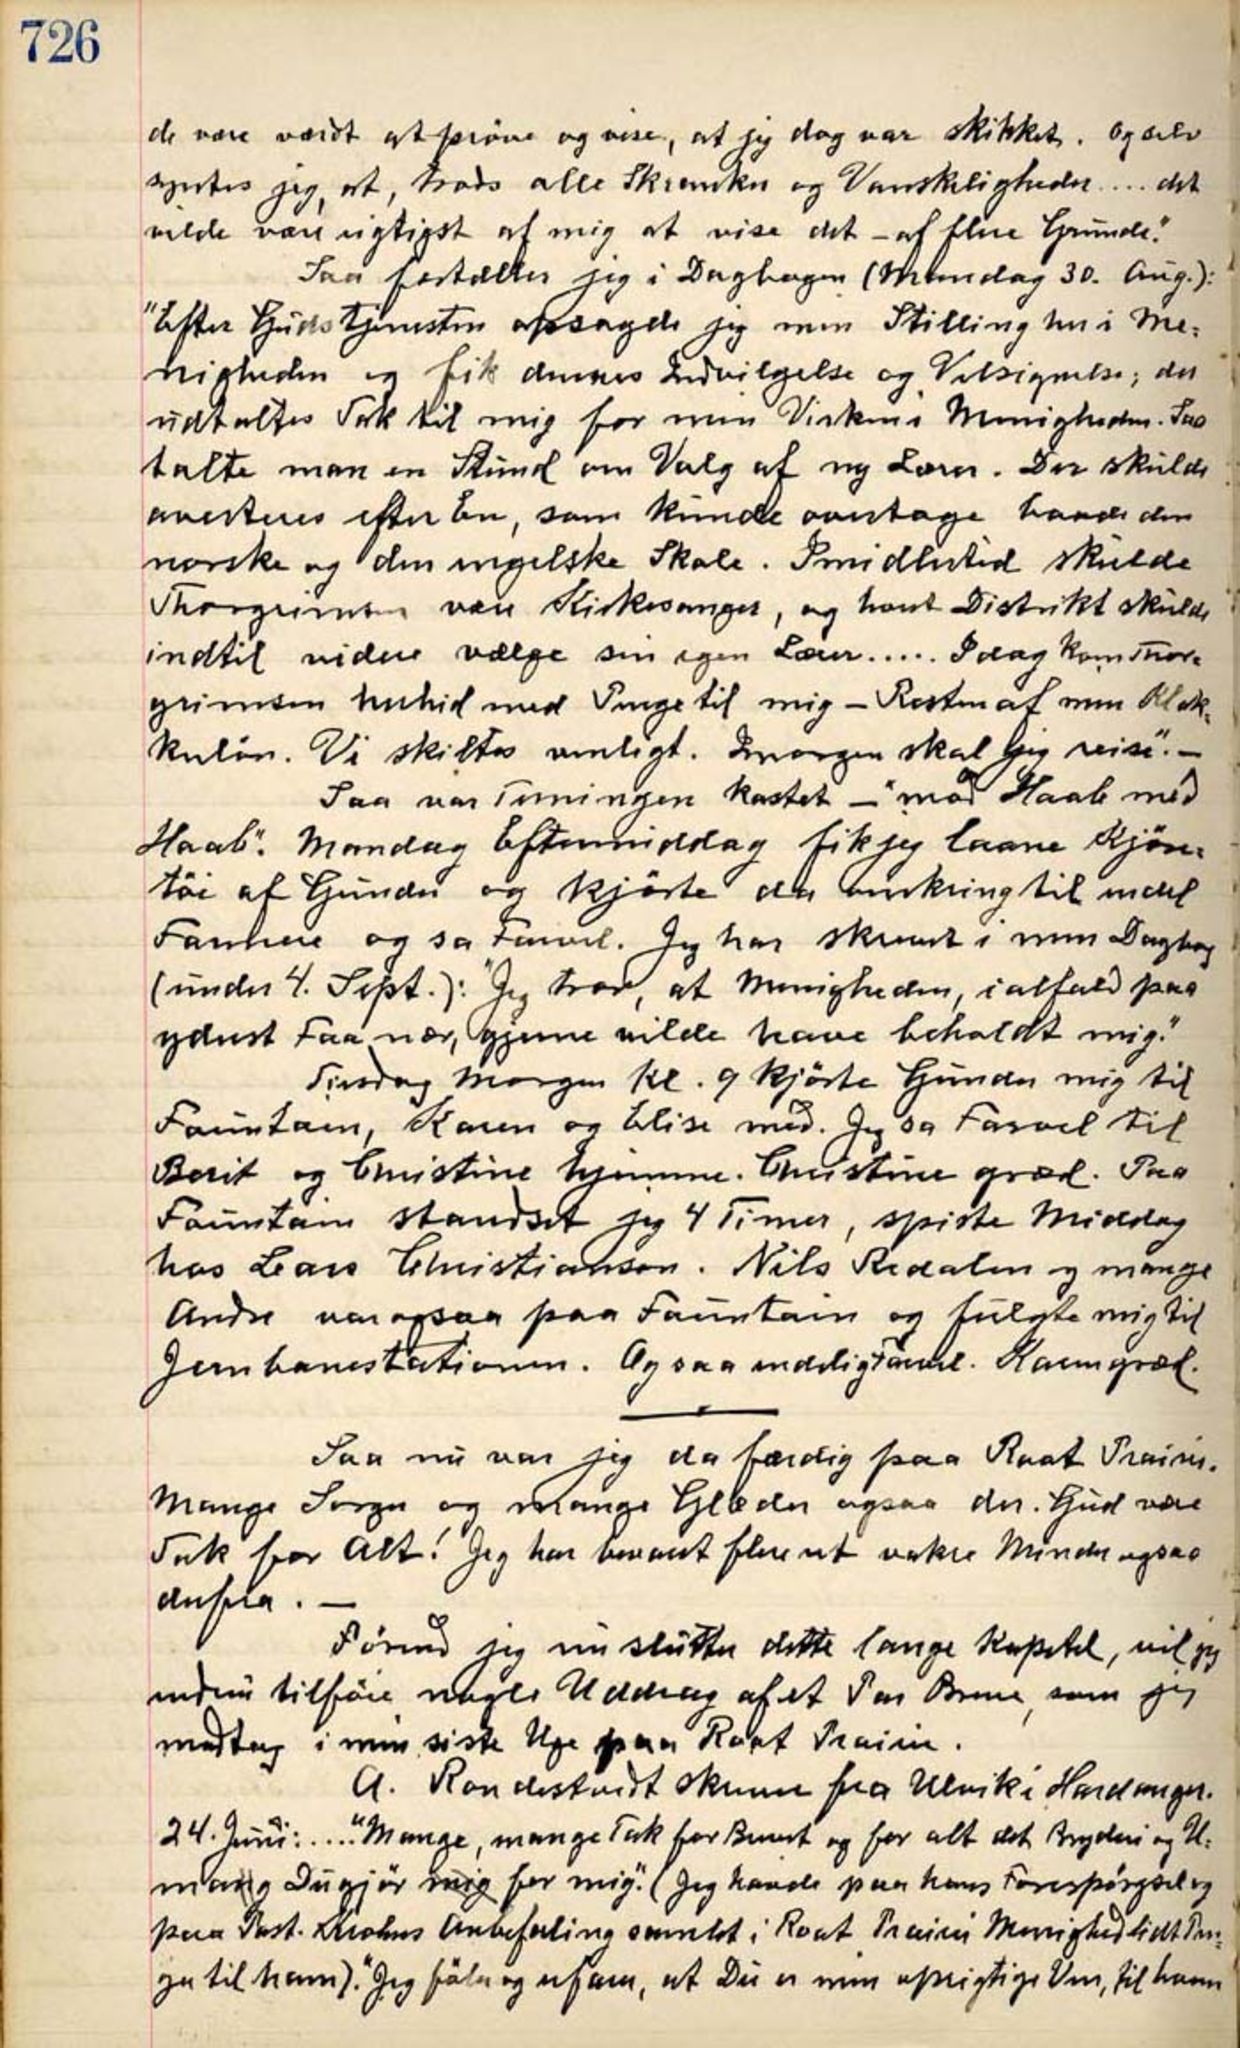 726
de være værdt at prøve og vise, at jeg dog var skikket. Og selv
syntes jeg, at, trods alle Skranker og Vanskeligheder .... det
vilde være rigtigst af mig at vise det – af flere Grunde."
Saa fortæller jeg i Dagbogen (Mandag 30. Aug.):
"Efter Gudstjenesten opsagde jeg min Stilling her i Me-
nigheden og fik dennes Indvilgelse og Velsignelse; der
udtaltes Tak til mig for min Virken i Menigheden. Saa
talte man en Stund om Valg af ny Lærer. Der skulde
averteres efter En, som kunde overtage baade den
norske og den engelske Skole. Imidlertid skulde
Thorgrimsen være Kirkesanger, og hvert Distrikt skulde
indtil videre vælge sin egen Lærer..... Idag kom Thor-
grimsen herhid med Penge til mig – Resten af min Klok-
kerløn. Vi skiltes venligt. Imorgen skal jeg reise". –
Saa var Terningen kastet – "mod Haab med
Haab". Mandag Eftermiddag fik jeg laane Kjøre-
tøi af Gunder og kjørte da omkring til endel
Farmere og sa Farvel. Jeg har skrevet i min Dagbog
(under 4. Sept.): "Jeg tror, at Menigheden, ialfald paa
yderst Faa nær, gjerne vilde have beholdt mig."
Tirsdag Morgen kl. 9 kjørte Gunder mig til
Fountain, Karen og Elise med. Jeg sa Farvel til
Berit og Christine hjemme. Christine græd. Paa
Fountain standset jeg 4 Timer, spiste Middag
hos Lars Christianson. Nils Redalen og mange
Andre var ogsaa paa Fountain og fulgte mig til
Jernbanestationen. Og saa endelig Farvel. Karen græd.
Saa nu var jeg da færdig paa Root Prairie.
Mange Sorger og mange Glæder ogsaa der. Gud være
Tak for Alt! Jeg har bevaret flere et vakre Minder ogsaa
derfra. –
Førend jeg nu slutter dette lange Kapitel, vil jeg
endnu tilføie nogle Uddrag af et Par Breve, som jeg
modtog i min siste Uge paa Root Prairie.
A. Rondestvedt skrev fra Ulvik i Hardanger.
24. Juni: .... "Mange, mange Tak for Brevet og for alt det Bryderi og U-
mag Du gjør mig for mig". (Jeg havde paa hans Forespørgsel og
paa Past. Krohns Anbefaling samlet i Root Prairie Menighed lidt Pen-
ge til ham). "Jeg føler og erfarer, at Du er min oprigtige Ven, til hvem